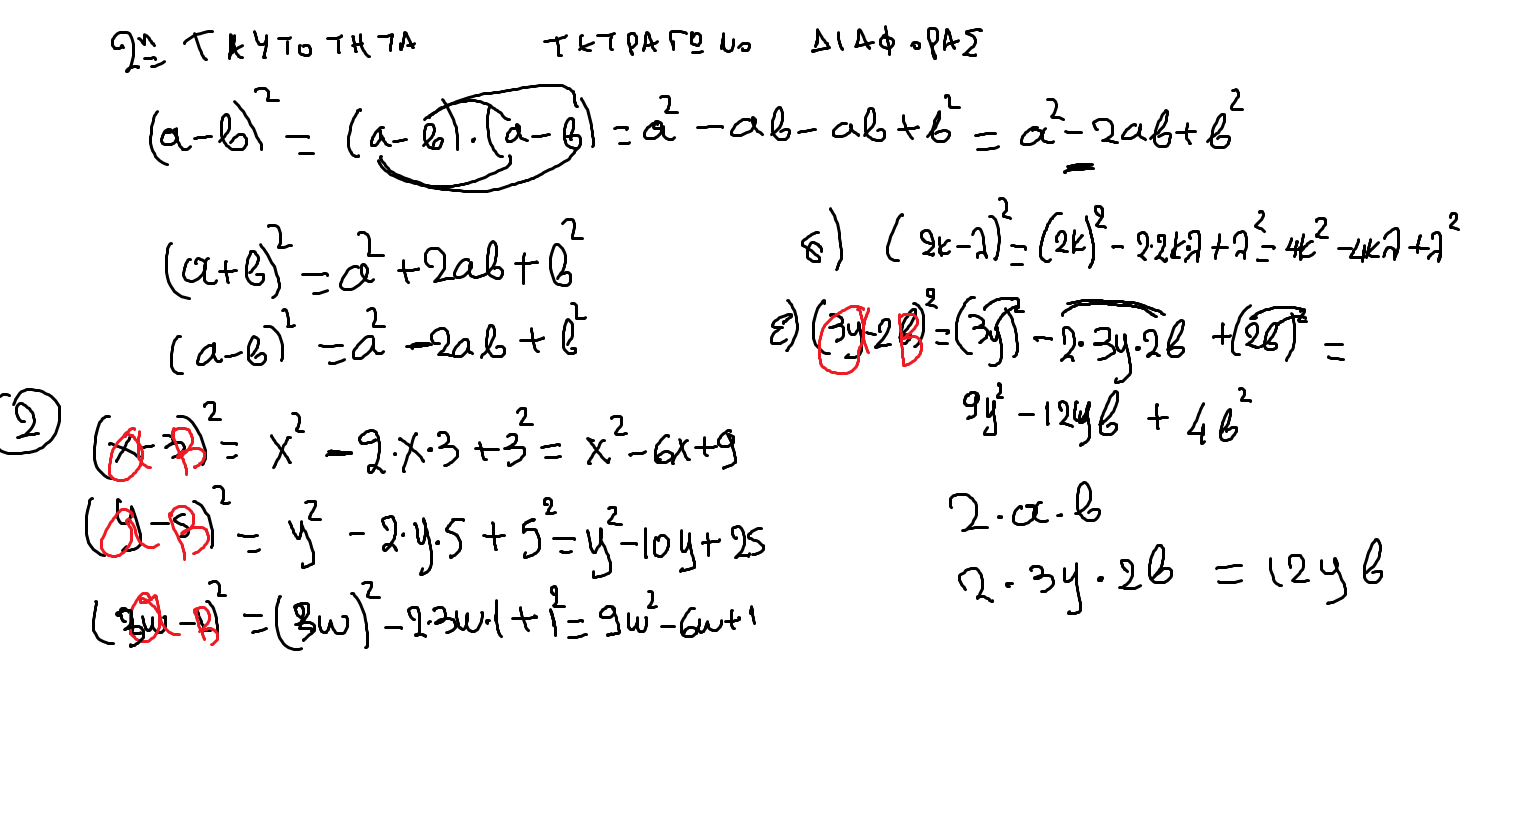 2η ΤΑΥΤΟΤΗΤΑ ΤΕΤΡΑΓΩΝΟ ΔΙΑΦΟΡΑΣ
(a-b)² = (a-b)·(a-b) = a² - ab - ab + b² = a² - 2ab + b²
(a+b)² = a² + 2ab + b²
(a-b)² = a² - 2ab + b²
2
(x-3)² = x² - 2·x·3 + 3² = x² - 6x + 9
(y-5)² = y² - 2·y·5 + 5² = y² - 10y + 25
(3w-1)² = (3w)² - 2·3w·1 + 1² = 9w² - 6w + 1
δ) (2κ-λ)² = (2κ)² - 2·2κ·λ + λ² = 4κ² - 4κλ + λ²
ε) (3y-2b)² = (3y)² - 2·3y·2b + (2b)² =
9y² - 12yb + 4b²
2·a·b
2·3y·2b = 12yb